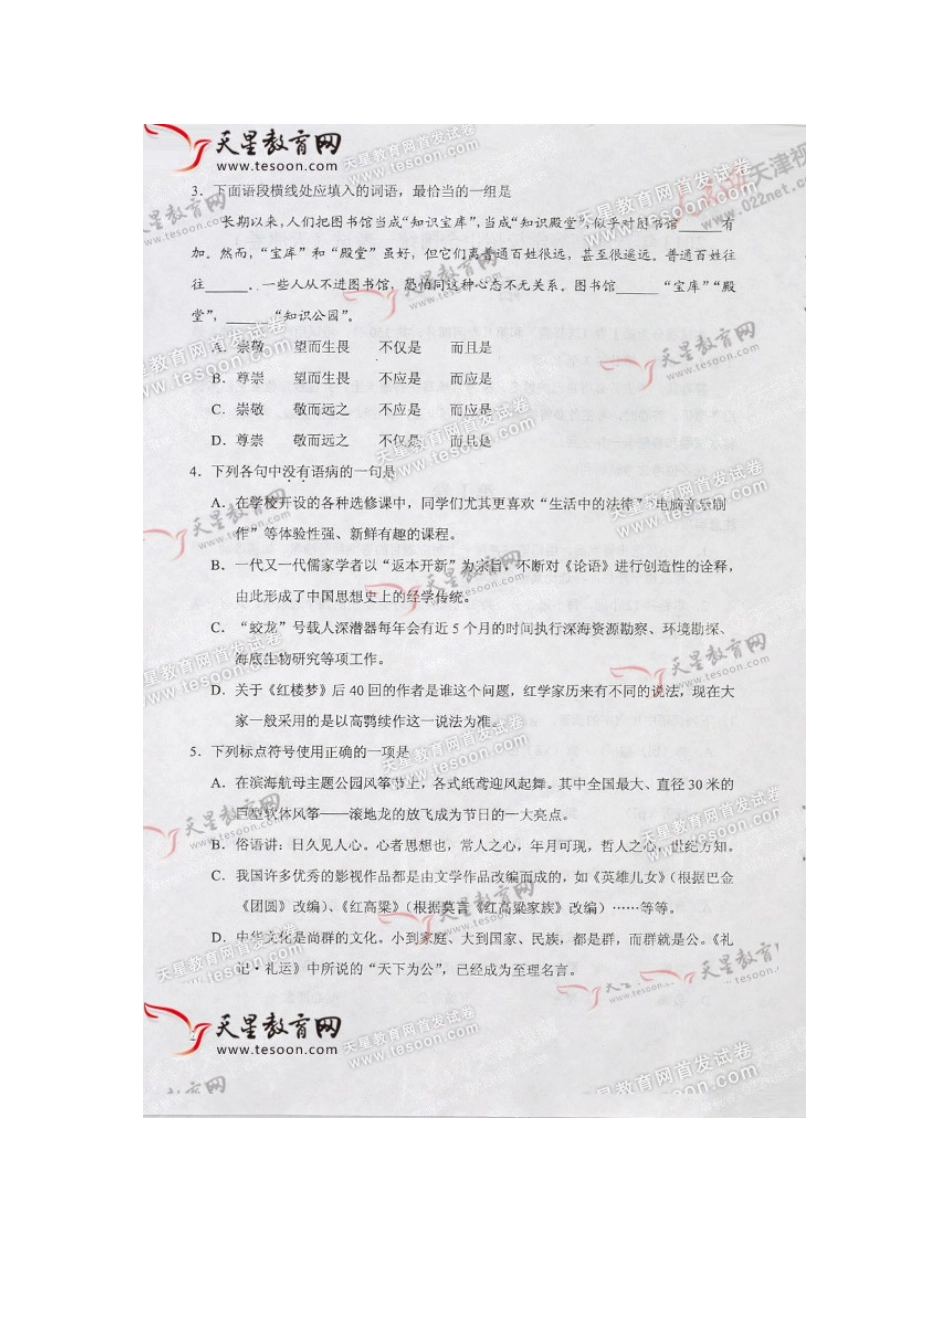 天星教育网
www.tesoon.com
天星教育网首发试卷
天津视
www.022net.c
3．下面语段横线处应填入的词语，最恰当的一组是
长期以来，人们把图书馆当成“知识宝库”，当成“知识殿堂”，似乎对图书馆______有
加。然而，“宝库”和“殿堂”虽好，但它们离普通百姓很远，甚至很遥远。普通百姓往
往______。一些人从不进图书馆，恐怕同这种心态不无关系。图书馆______“宝库”“殿
堂”，______“知识公园”。
A．崇敬 望而生畏 不仅是 而且是
B．尊崇 望而生畏 不应是 而应是
C．崇敬 敬而远之 不应是 而应是
D．尊崇 敬而远之 不仅是 而且是
4．下列各句中没有语病的一句是
A．在学校开设的各种选修课中，同学们尤其更喜欢“生活中的法律”“电脑音乐制
作”等体验性强、新鲜有趣的课程。
B．一代又一代儒家学者以“返本开新”为宗旨，不断对《论语》进行创造性的诠释，
由此形成了中国思想史上的经学传统。
C．“蛟龙”号载人深潜器每年会有近 5 个月的时间执行深海资源勘察、环境勘探、
海底生物研究等项工作。
D．关于《红楼梦》后 40 回的作者是谁这个问题，红学家历来有不同的说法，现在大
家一般采用的是以高鹗续作这一说法为准。
5．下列标点符号使用正确的一项是
A．在滨海航母主题公园风筝节上，各式纸鸢迎风起舞。其中全国最大、直径 30 米的
巨型软体风筝——滚地龙的放飞成为节日的一大亮点。
B．俗语讲：日久见人心。心者思想也，常人之心，年月可现，哲人之心，世纪方知。
C．我国许多优秀的影视作品都是由文学作品改编而成的，如《英雄儿女》（根据巴金
《团圆》改编）、《红高粱》（根据莫言《红高粱家族》改编）……等等。
D．中华文化是尚群的文化。小到家庭、大到国家、民族，都是群，而群就是公。《礼
记·礼运》中所说的“天下为公”，已经成为至理名言。
天星教育网
www.tesoon.com
天星教育网首发试卷
www.tesoon.com